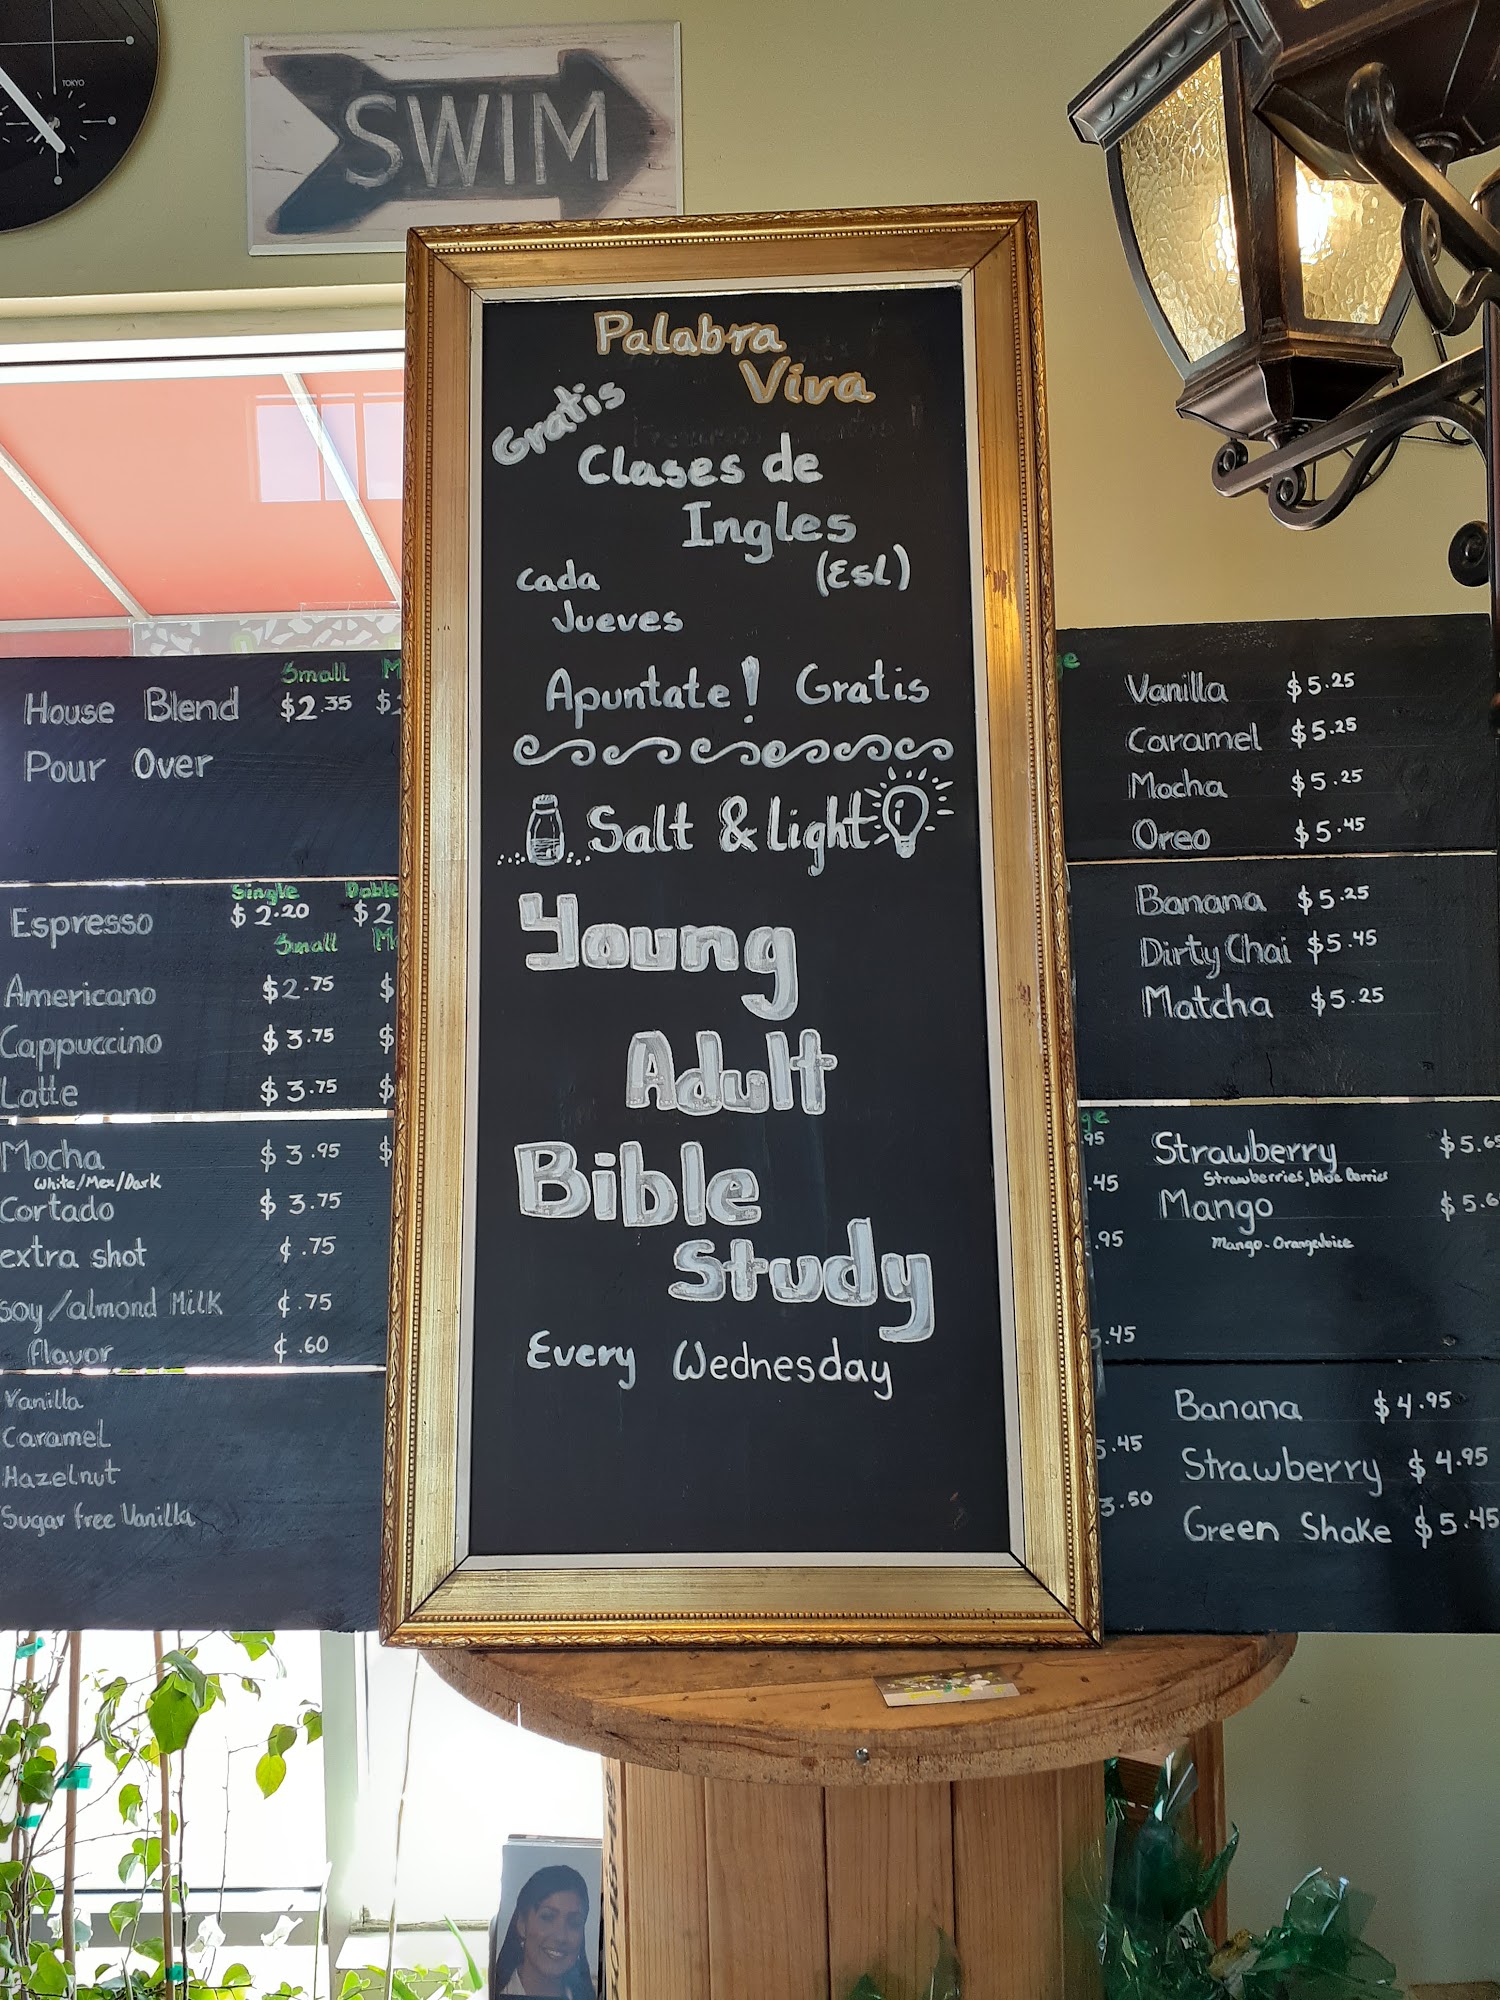 TOKYO
SWIM
Palabra
Viva
Gratis
Clases de
Ingles
(ESL)
Cada
Jueves
Apuntate! Gratis
Salt & light
Young
Adult
Bible
Study
Every Wednesday
Small
House Blend $2.35 $
Pour Over
Single Doble
Espresso $2.20 $2
Small
Americano $2.75 $
Cappuccino $3.75 $
Latte $3.75 $
Mocha $3.95 $
White/Mex/Dark
Cortado $3.75
extra shot ¢.75
soy/almond Milk ¢.75
flavor ¢.60
Vanilla
Caramel
Hazelnut
Sugar free Vanilla
ge
Vanilla $5.25
Caramel $5.25
Mocha $5.25
Oreo $5.45
Banana $5.25
Dirty Chai $5.45
Matcha $5.25
ge
.95
.45
.95
5.45
5.45
3.50
Strawberry $5.65
Strawberries, blue Berries
Mango $5.6
Mango-Orangejuice
Banana $4.95
Strawberry $4.95
Green Shake $5.45